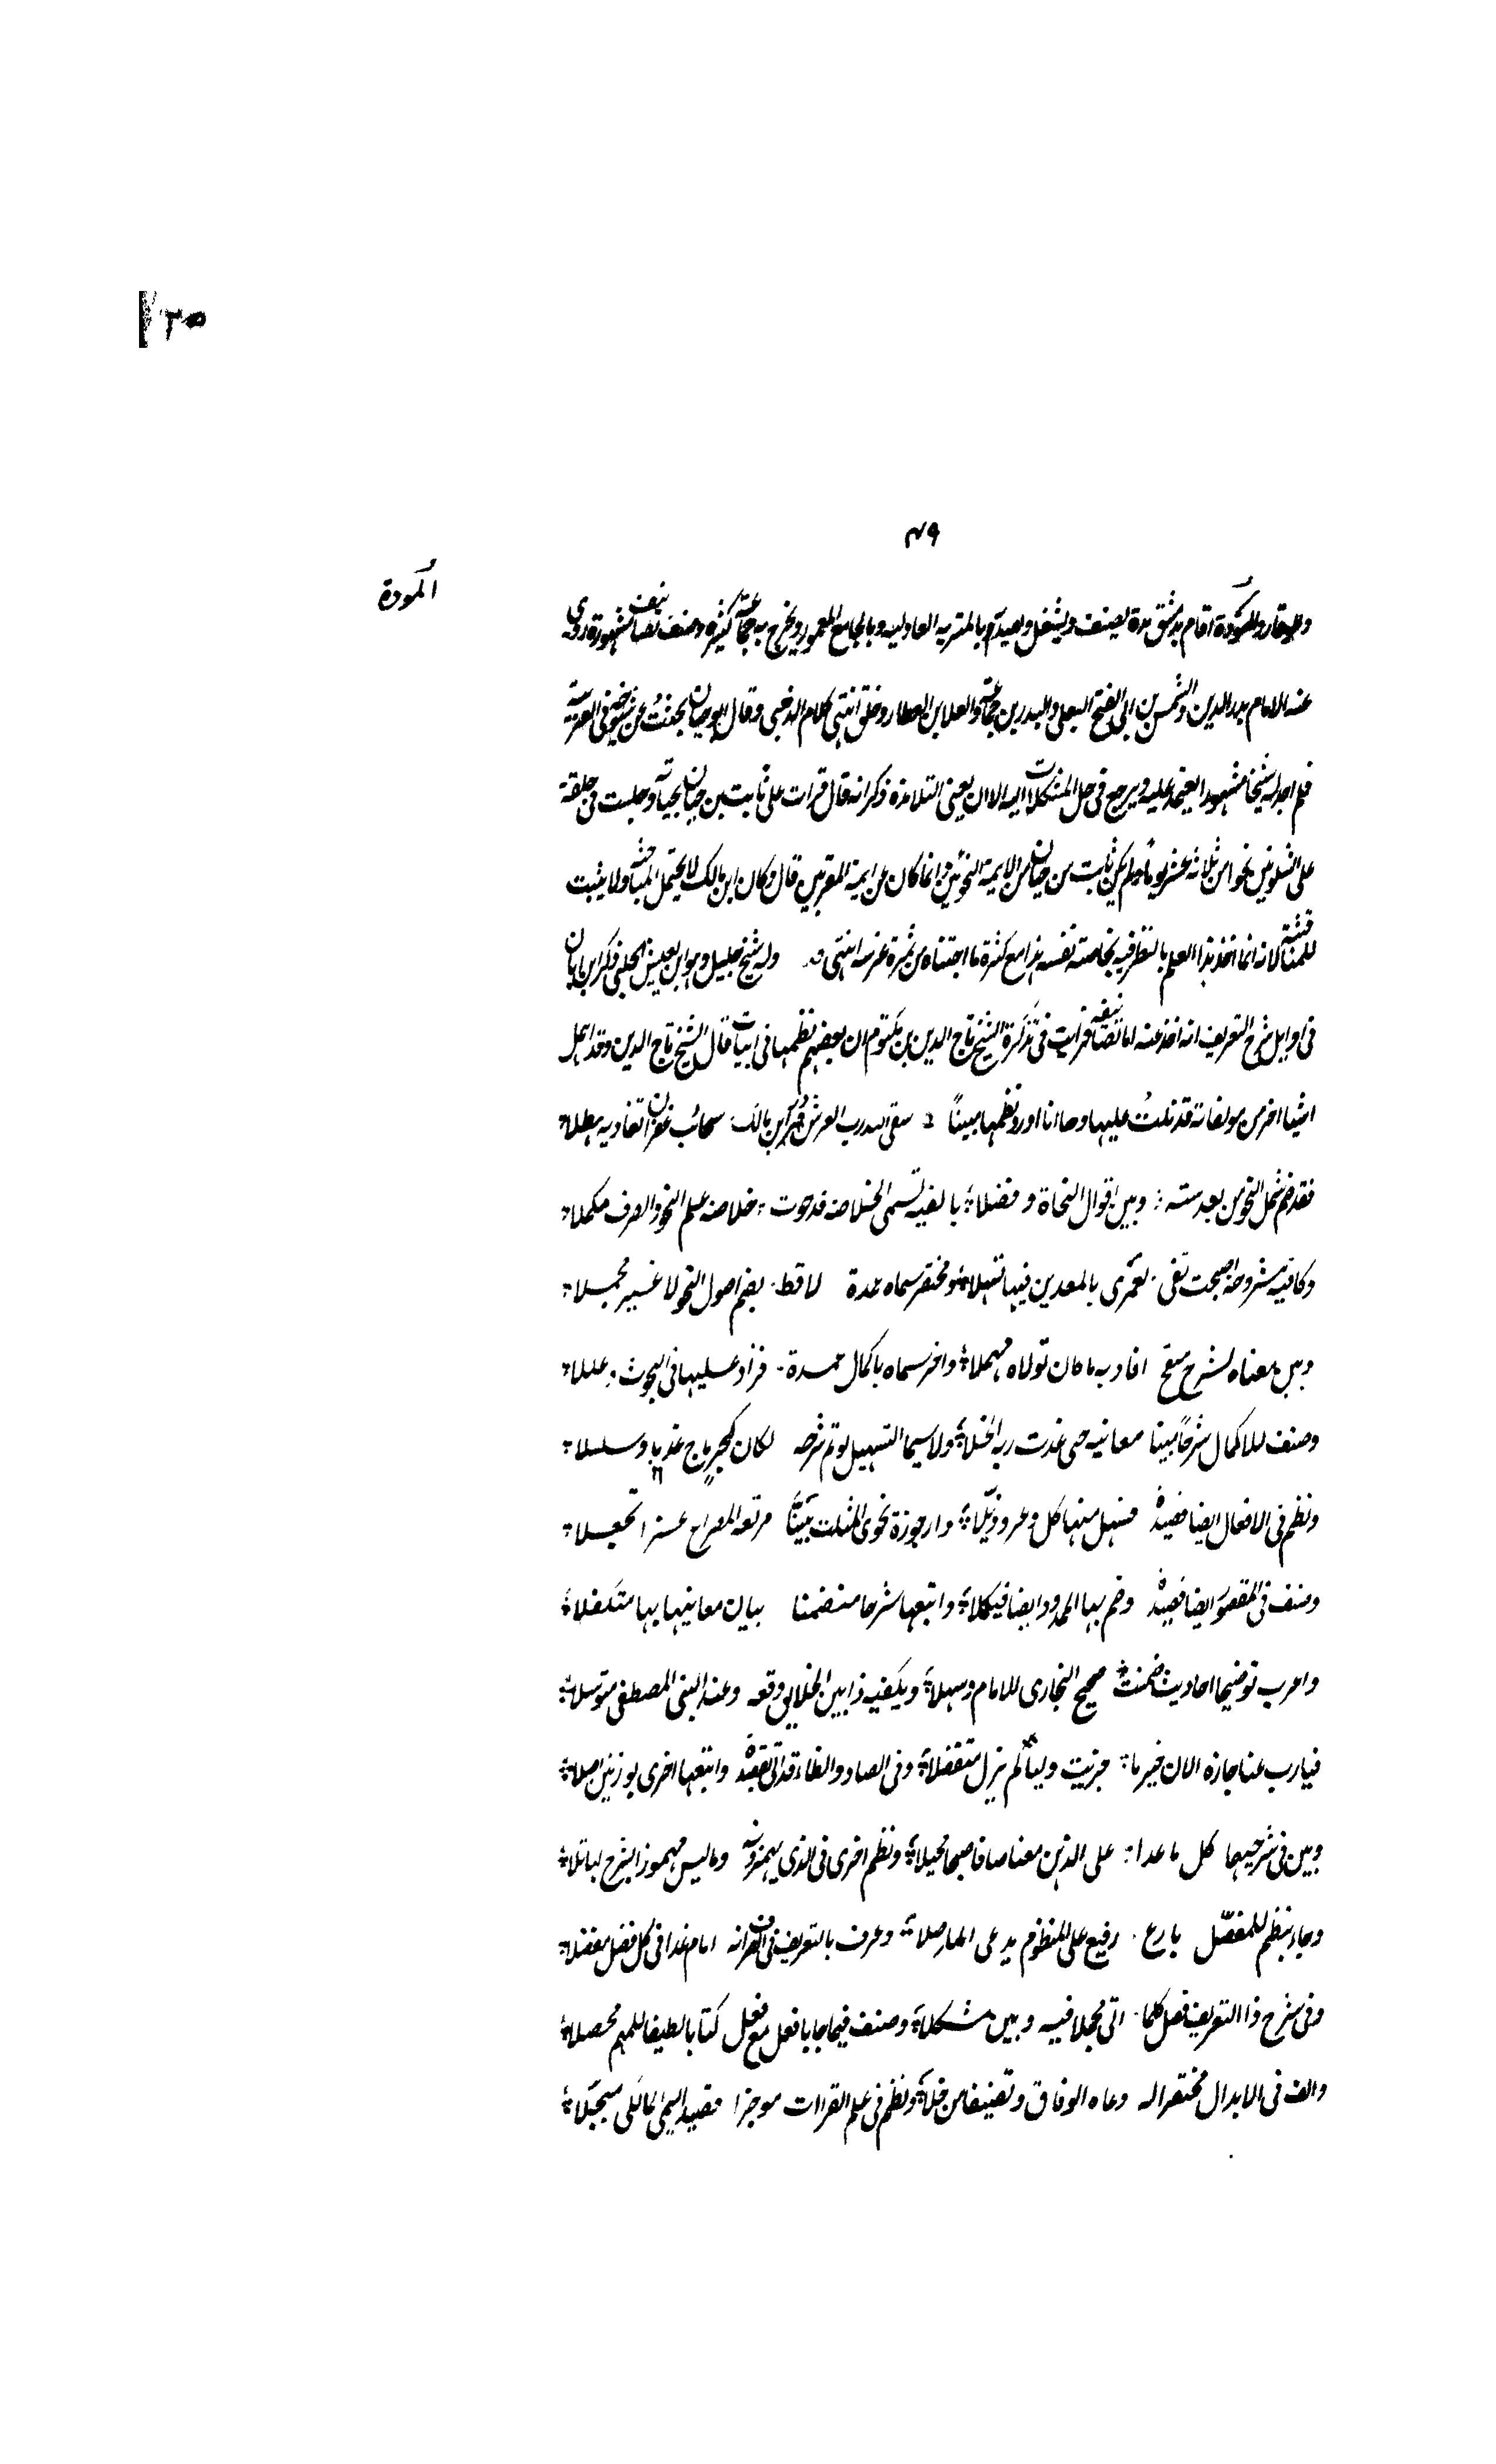 ٤٩
المودة
والوقار والتؤدة اقام بدمشق مدة يصنف ويشغل وتصدر بالتربه العادليه وبالجامع المعمور وتخرج به جماعة كثيرة وصنف تصانيف مشهورة روى
عنه الامام بدر الدين والشمس بن ابى الفتح البعلى والبدر بن جماعة والعلا بن العطار وخلق انتهى كلام الذهبى وقال ابو حيان بحثت عن شيوخه فى العربية
فلم اجد له شيخا مشهورا يعتمد عليه ويرجع فى حل المشكلات اليه الا ان بعض التلامذة ذكر انه قال قرات على ثابت بن حيان بجيان وجلست فى حلقة
على الشلوبين نحوا من ثلاثة عشر يوما ولم يكن ثابت من حيان من الايمة النحويين وانما كان من ايمة المقربين قال وكان ابن مالك لا يحتمل المباحثة ولا يثبت
للمناقشة لانه انما اخذ هذا العلم بالنظر فيه بخاصة نفسه هذا مع كثرة ما اجتناه من ثمرة غرسه انتهى وله شيخ جليل وهو ابن يعيش الحلبى ذكر ابن اياز
فى اوايل شرح التعريف انه اخذ عنه اما تصانيفه فرايت فى تذكرة الشيخ تاج الدين بن مكتوم ان بعضهم نظمها فى ابيات قال الشيخ تاج الدين وقد اهمل
اشيا اخر من مولفاته قد نيلت عليها وها انا اورد نظمها مبينا سقى الله رب العرش قبر ابن مالك سحائب غفران تغاديه هطلا
فقد ضم شمل النحو من بعد شته وبين اقوال النحاة وفضلا بالفيه تسمى الخلاصة قد حوت خلاصة علم النحو والصرف مكملا
وكافيه مشروحة اصبحت تفى لعمرى بالمعدين فيها تسهلا ومختصر سماه عمدة لاقط يضم اصول النحو لا غير مجملا
وبين معناه لشرح منقح افاد به ما كان لولاه مهملا واخر سماه باكمال عمدة فزاد عليها فى البحوث وعللا
وصنف للاكمال شرحا مبينا معانيه حتى غدت ربة الخلا ولا سيما التسهيل لو تم شرحه لكان كبحر ماج عذبا وسلسلا
ونظم فى الافعال ايضا قصيدة فسهل منها كل وعر وذللا وارجوزة تحوى المثلث بينا
وصنف فى المقصور ايضا قصيدة وضم بها الممدود ايضا فيكملا واتبعها شرحا متضمنا بيان معانيها بها متكفلا
واعرب توضيحا احاديث ضمنت صحيح البخارى للامام وسهلا ويكفيه ذا بين الخلايق رفعه وعند النبى المصطفى متوسلا
فيارب عنا جازه الان خير ما جزيت وليا لم يزل متفضلا وفى الضاد والظاء قد اتى بقصيدة واتبعها اخرى بوزنين اصلا
وبين فى شرحيهما كل ما غدا على الذهن معتاصا فاصبح مجتلا ونظم اخرى فى الذى يهمزونه وما ليس مهموزا بشرح لها تلا
وجاء بنظم للمفصل بارع رفيع على المنظوم يدعى الموصلا وعرف بالتعريف فى الصرف انه امام غدا فى كل فضل مفضلا
وفى شرح ذا التعريف فصل كلما اتى مجملا فيه وبين مشكلا وصنف فيما جا بافعل مع فعل كتابا لطيفا للمهم محصلا
والف فى الابدال مختصرا له وعاه الوفاق وتصنيفا من خلا ونظم فى علم القراءات موجزا قصيدا يسمى المالكى مبجلا